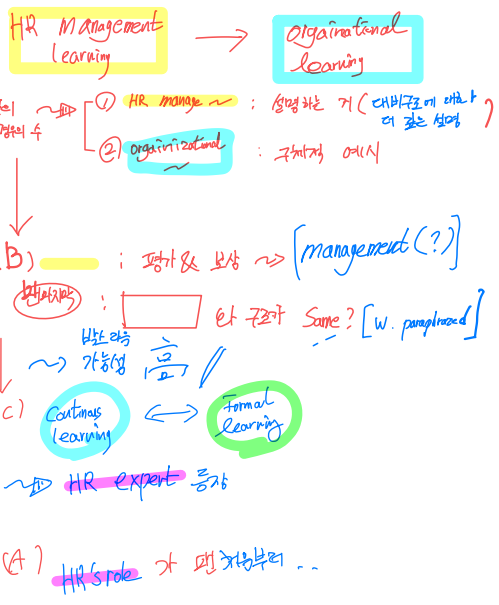 HR Management learning → orgainational learning
① HR manage ~ : 설명하는 거 (대비구조에 대하여 더 깊은 설명)
경우의 수
② orgainizational ~ : 구체적 예시
B) : 평가 & 보상 ~> [management(?)]
맨마지막 : 와 구조가 Same? [w. paraphrazed]
~> 박스라음 가능성 高
C) Continous learning ↔ Formal learning
~> HR expert 등장
(A) HR's role 가 맨 처음부터 ...